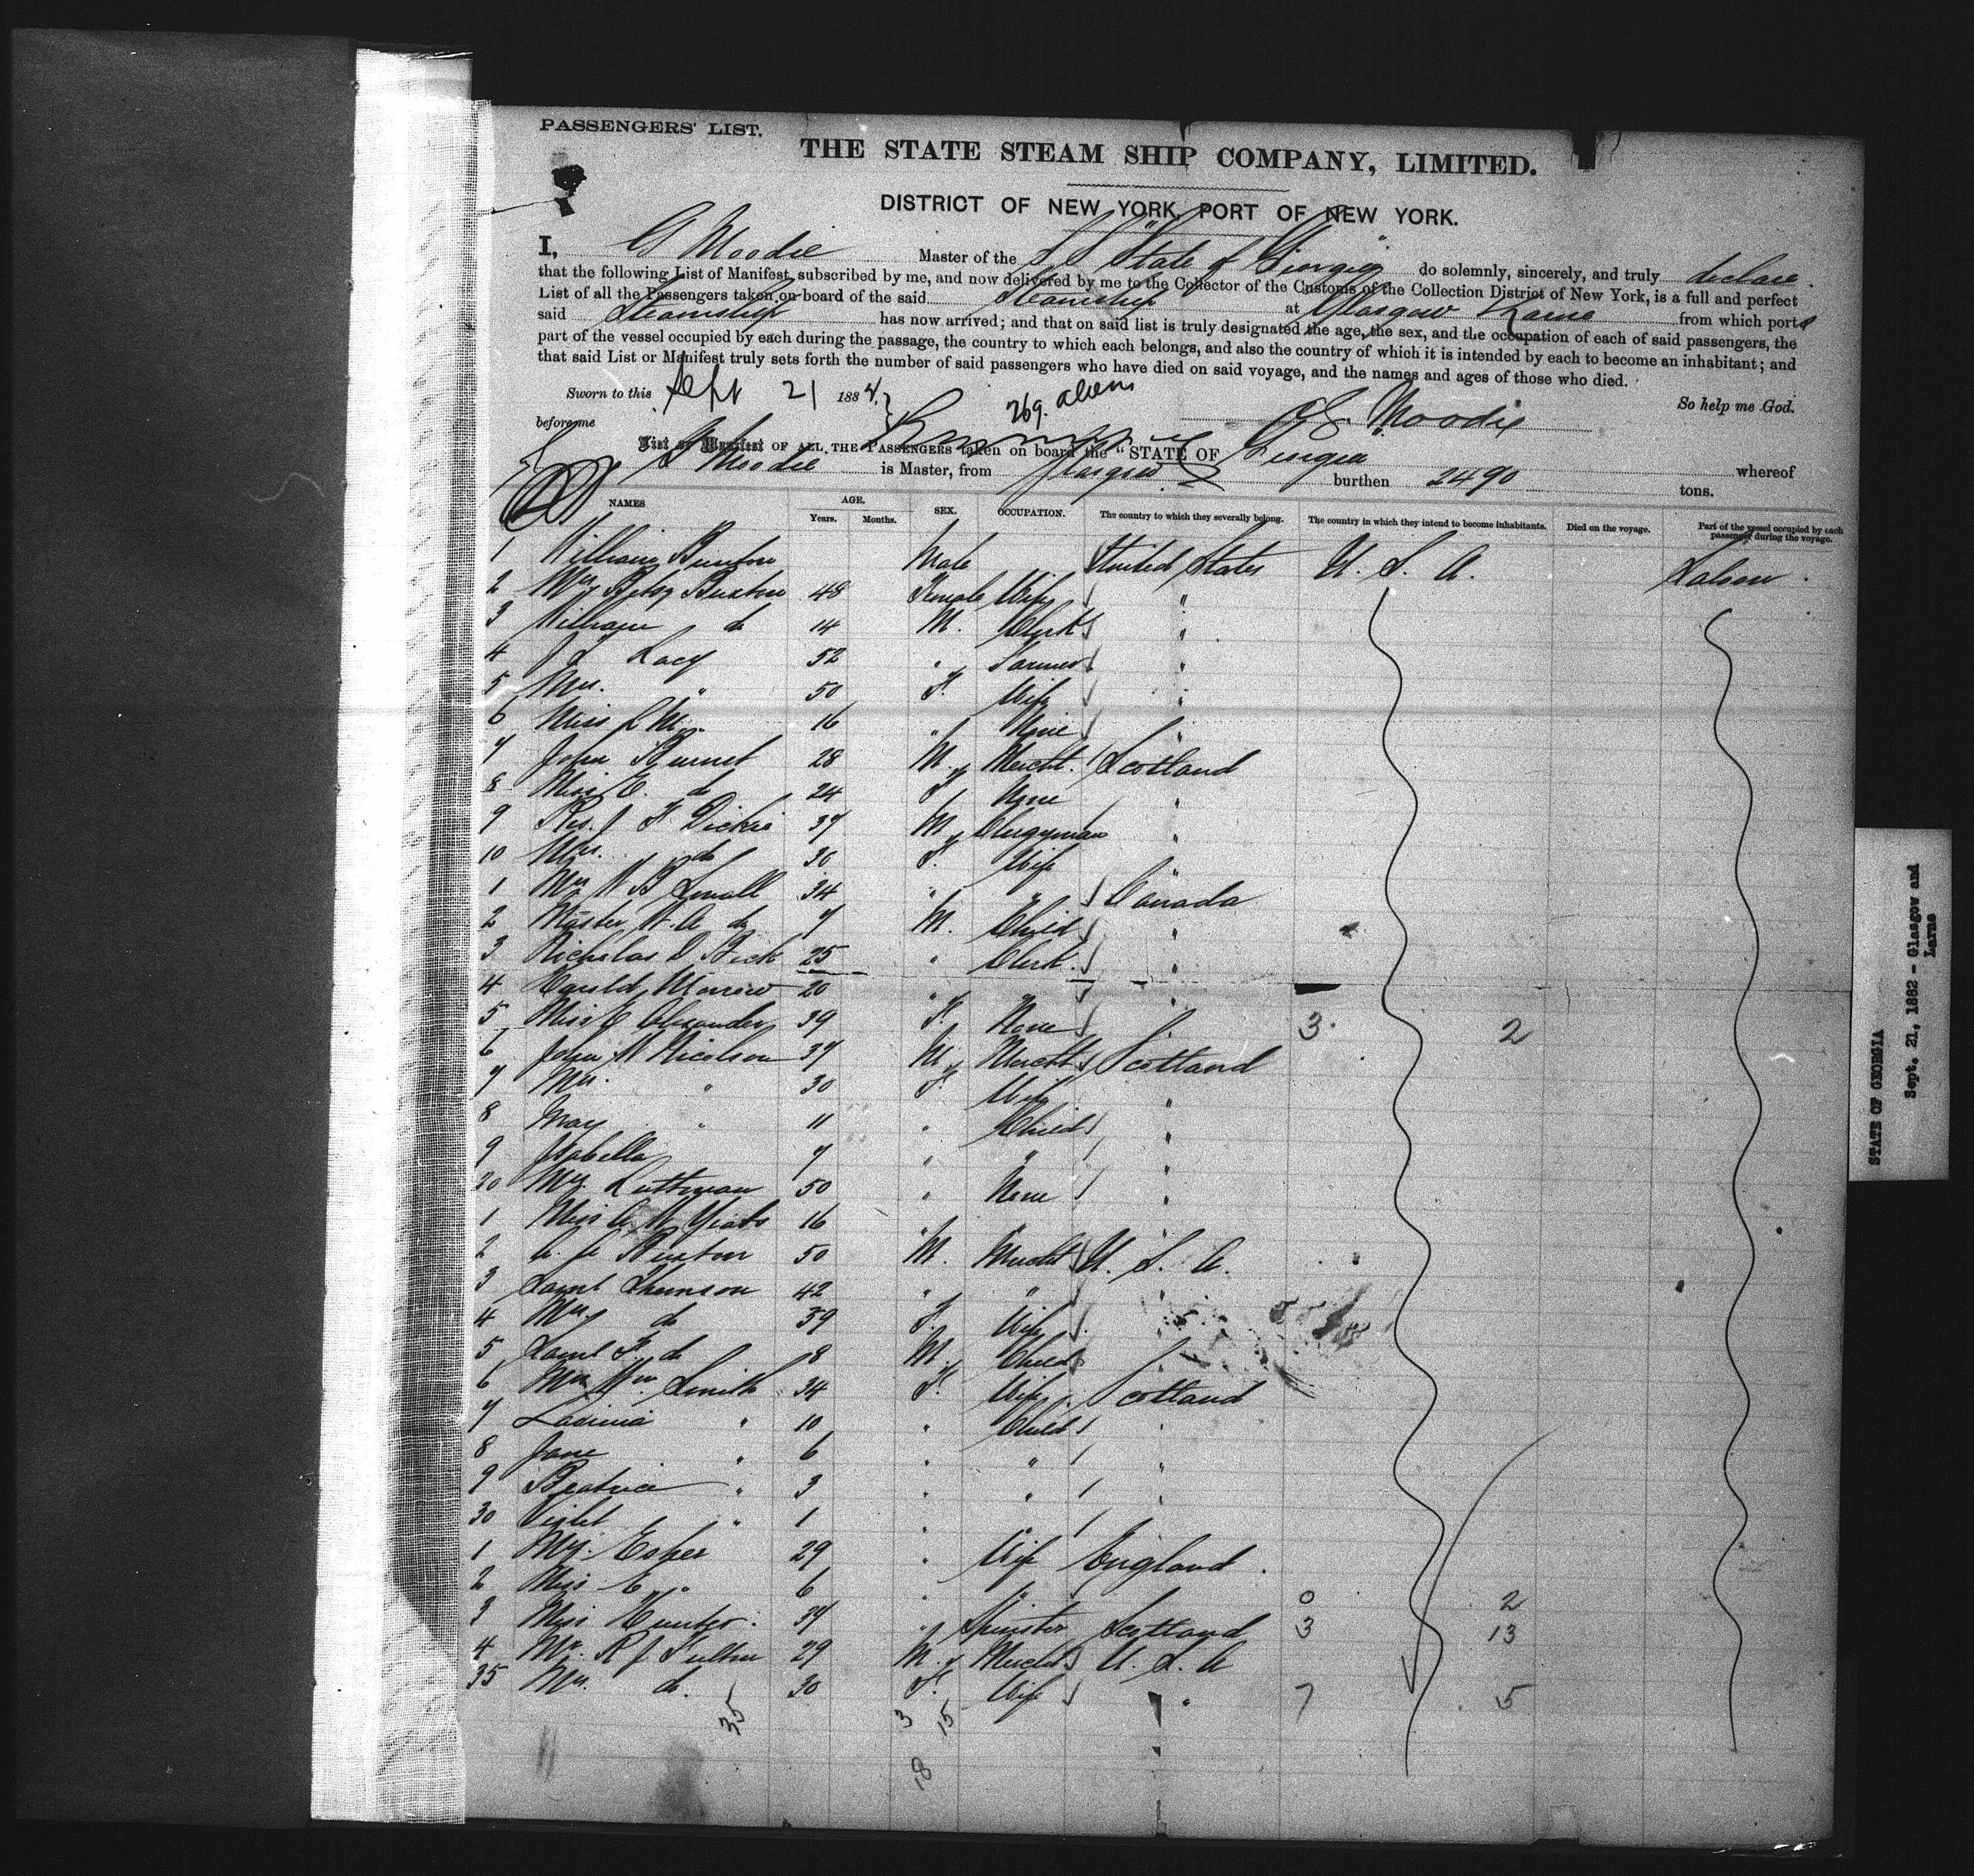 PASSENGERS' LIST.
THE STATE STEAM SHIP COMPANY, LIMITED.
DISTRICT OF NEW YORK, PORT OF NEW YORK.
I, G Moodie Master of the S S "State of Georgia" do solemnly, sincerely, and truly declare
that the following List of Manifest, subscribed by me, and now delivered by me to the Collector of the Customs of the Collection District of New York, is a full and perfect
List of all the Passengers taken on board of the said Steamship at Glasgow Larne from which ports
said Steamship has now arrived; and that on said list is truly designated the age, the sex, and the occupation of each of said passengers, the
part of the vessel occupied by each during the passage, the country to which each belongs, and also the country of which it is intended by each to become an inhabitant; and
that said List or Manifest truly sets forth the number of said passengers who have died on said voyage, and the names and ages of those who died.
Sworn to this Sept 21 188
269. aliens
So help me God.
before me
Moodie
List or Manifest OF ALL THE PASSENGERS taken on board the "STATE OF Georgia
G Moodie is Master, from Glasgow burthen 2490 tons. whereof
NAMES AGE. Years. Months. SEX. OCCUPATION. The country to which they severally belong. The country in which they intend to become inhabitants. Died on the voyage. Part of the vessel occupied by each passenger during the voyage.
1 William Buxton Male United States U. S. A. Saloon
2 Mrs Betsy Buxton 48 Female Wife "
3 William do 14 M. Clerk "
4 J L Lacy 52 " Farmer "
5 Mrs. " 50 F. Wife "
6 Miss L M. " 16 " None "
7 John Burnet 28 M. Mercht. Scotland
8 Miss E. do 24 F. None "
9 Rev. J F Dickie 37 M. Clergyman "
10 Mrs. do 30 F. Wife "
1 Mrs W B Small 34 " " Canada
2 Master W. A do 7 M. Child "
3 Nicholas D Beck 25 " Clerk "
4 Harold Morrow 20 " " "
5 Miss C Alexander 39 F. None " 3 2
6 John W Nicolson 37 M. Mercht Scotland
7 Mrs. " 30 F. Wife "
8 May " 11 " Child "
9 Isabella 7 " " "
20 Mrs. 50 " None "
1 Miss A W Yeats 16 "
2 Buxton 50 M. Mercht U. S. A.
3 Saml Thomson 42 " " "
4 Mrs do 39 F. Wife
5 Saml F do 8 M. Child
6 Mrs Wm Smith 34 F. Wife Scotland
7 Lavinia " 10 " Child "
8 Jane " 6 " " "
9 Beatrice " 3 " " "
30 Violet " 1 " "
1 Mrs. Esher 29 " Wife England
2 Miss E " 6 " " 0 2
3 Miss Hunter 37 " Spinster Scotland 3 13
4 Mr. R J Fulton 29 M. Mercht U. S. A
35 Mrs. do. 30 F. Wife " 7 5
35 3 15
18
STATE OF GEORGIA
Sept. 21, 1882 - Glasgow and
Larne